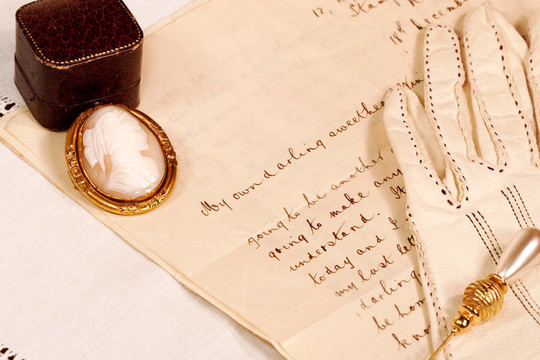 Stam
18th Decem
My own darling sweethea
going to be another
going to make any
understand. I
today and I
my last let
darling
be hon
know